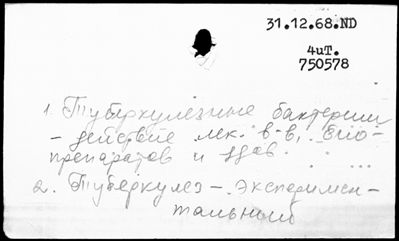 31.12.68.ND
4иТ.
750578
1. Туберкулезные бактерии
- действие лек. в-в, био-
препаратов и
2. Туберкулез - Эксперимен-
тальный